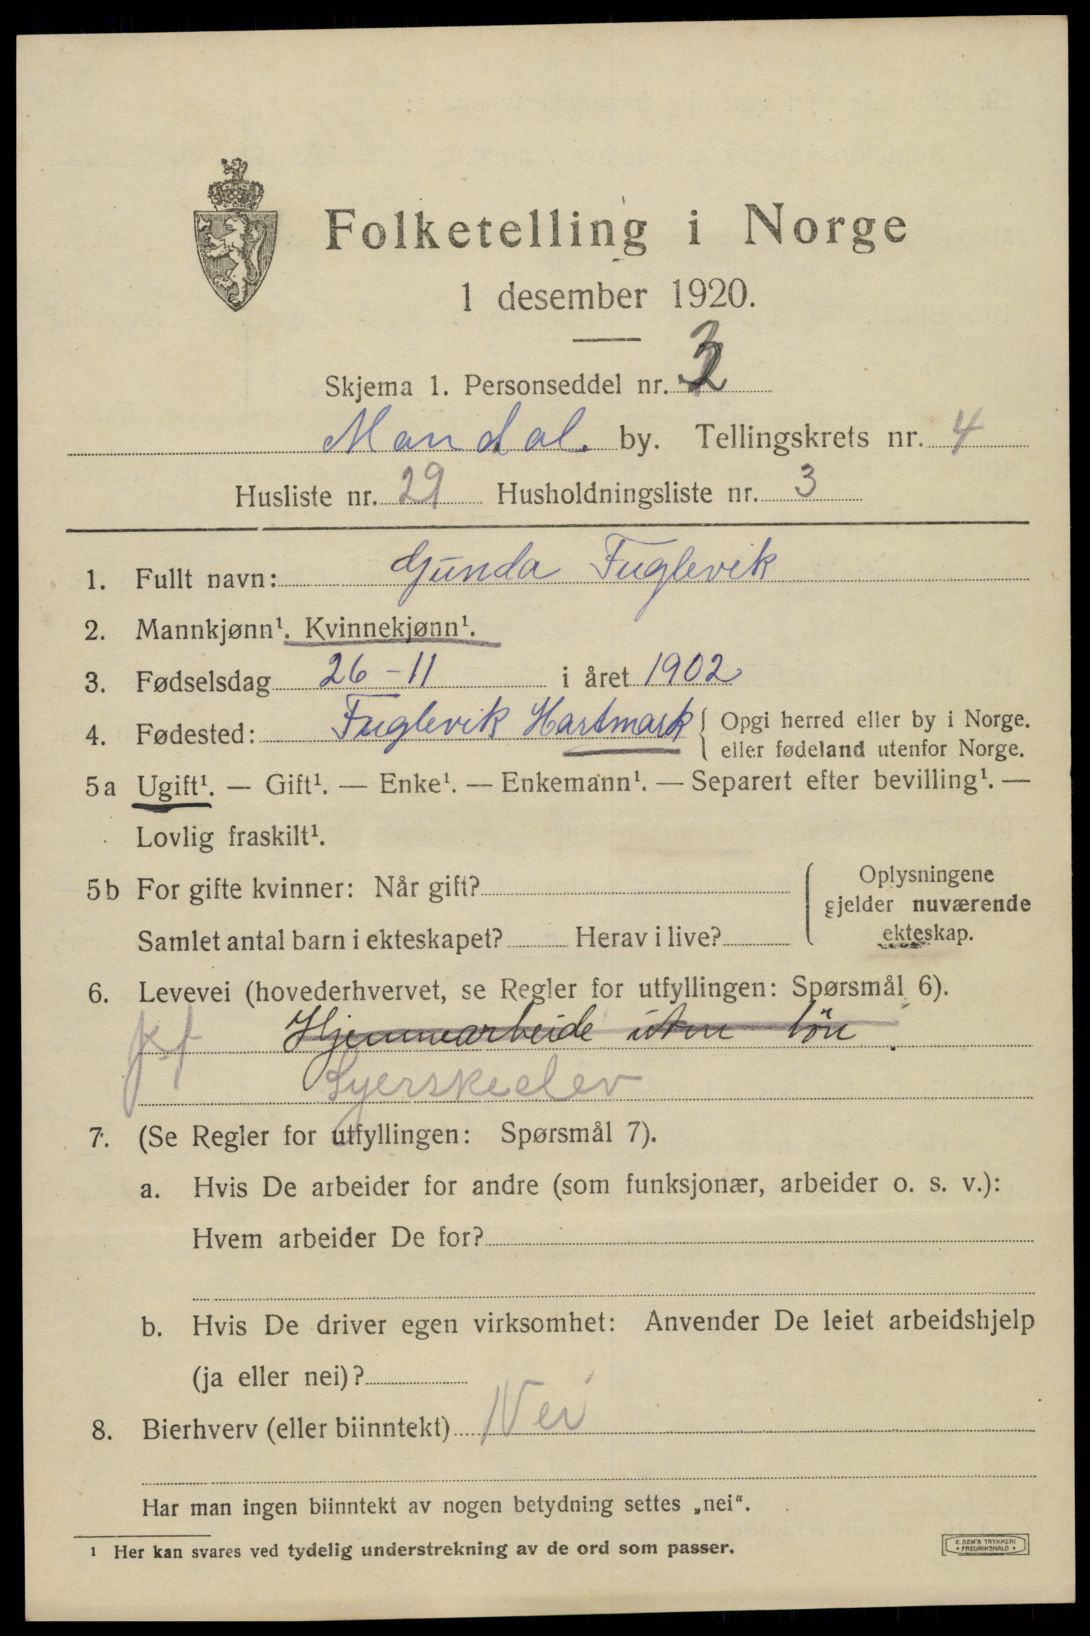 Folketelling i Norge
1 desember 1920.
Skjema 1. Personseddel nr. 3
Mandal. by. Tellingskrets nr. 4
Husliste nr. 29 Husholdningsliste nr. 3
1. Fullt navn: Gunda Fuglevik
2. Mannkjønn¹. Kvinnekjønn¹.
3. Fødselsdag 26-11 i året 1902
4. Fødested: Fuglevik Hartmark { Opgi herred eller by i Norge.
eller fødeland utenfor Norge.
5a Ugift¹. — Gift¹. — Enke¹. — Enkemann¹. — Separert efter bevilling¹. —
Lovlig fraskilt¹.
5b For gifte kvinner: Når gift? Oplysningene
gjelder nuværende
Samlet antal barn i ekteskapet? Herav i live? ekteskap.
6. Levevei (hovederhvervet, se Regler for utfyllingen: Spørsmål 6).
Hjemmearbeide uten løn.
Syerskeelev
7. (Se Regler for utfyllingen: Spørsmål 7).
a. Hvis De arbeider for andre (som funksjonær, arbeider o. s. v.):
Hvem arbeider De for?
b. Hvis De driver egen virksomhet: Anvender De leiet arbeidshjelp
(ja eller nei)?
8. Bierhverv (eller biinntekt) Nei
Har man ingen biinntekt av nogen betydning settes „nei“.
¹ Her kan svares ved tydelig understrekning av de ord som passer.
E. SEM'S TRYKKERI
FREDRIKSHALD